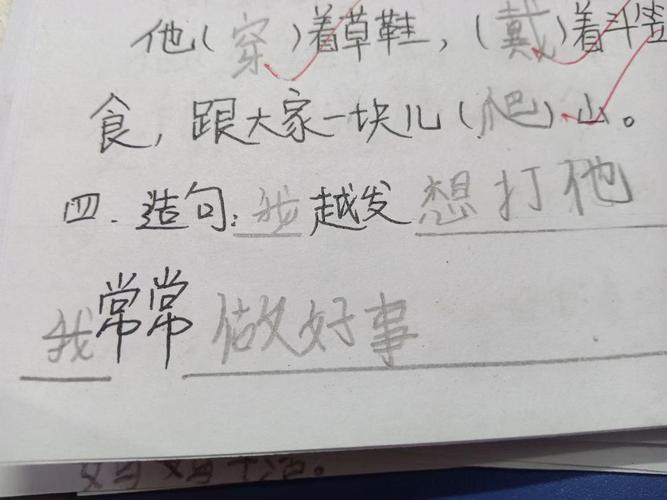 他(穿)着草鞋,(戴)着斗笠
食,跟大家一块儿(爬)山。
四.造句:我越发想打他
我常常做好事